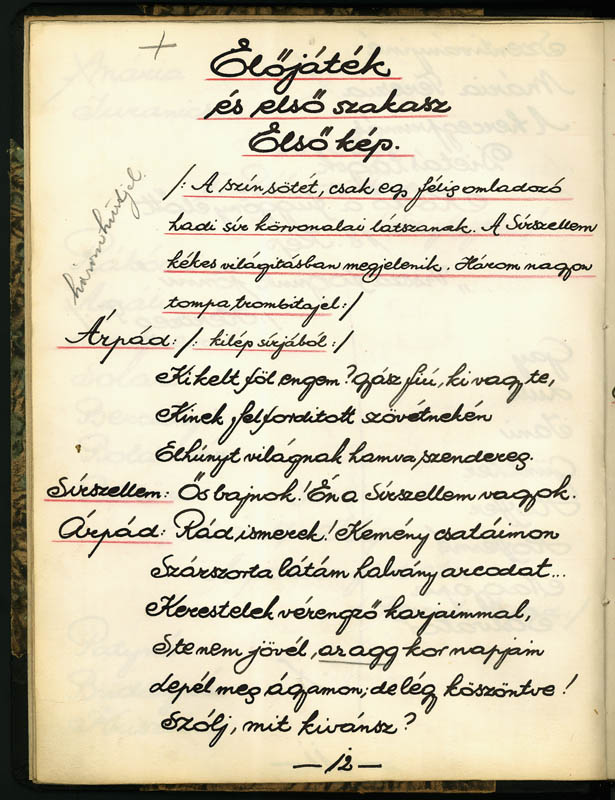 Előjáték
és első szakasz
Első kép.
/: A szín sötét, csak egy félig omladozó
hadi sír körvonalai látszanak. A Sírszellem
kékes világításban megjelenik. Három nagyon
tompa trombitajel :/
három kürtjel.
Árpád: /: kilép sírjából :/
Ki kelt föl engem? gyász fiú, ki vagy te,
Kinek felfordított szövétnekén
Elhúnyt világnak hamva szendereg.
Sírszellem: Ős bajnok! Én a Sírszellem vagyok.
Árpád: Rád ismerek! Kemény csatáimon
Százszorta látám halvány arcodat...
Kerestelek vérengző karjaimmal,
S te nem jövél, az agg kor napjain
lepél meg ágyamon; de légy köszöntve!
Szólj, mit kivánsz?
— 12 —